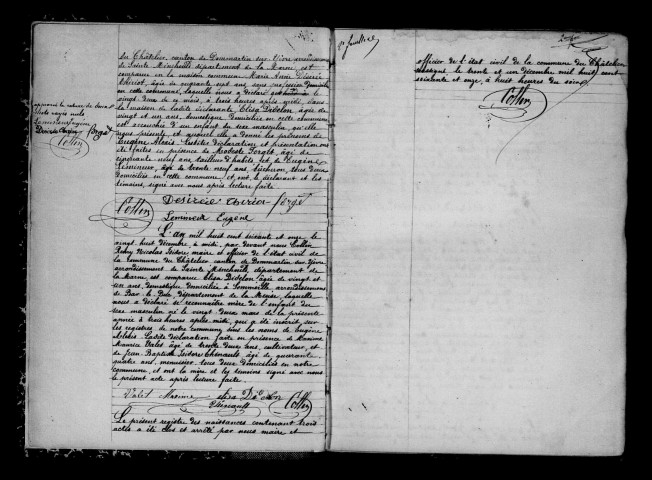 du Châtelier, canton de Dommartin sur Yèvre arrondissement
de Sainte Menehould département de la Marne, est
comparue en la maison commune Marie Anne Désirée
Thiriot, âgée de cinquante sept ans, sage femme domiciliée
en cette commune, laquelle nous a déclaré que
vingt deux de ce mois, à trois heures après midi, dans
la maison de ladite déclarante, Elisa Didelon, âgée de
vingt et un ans, domestique domiciliée en cette commune
est accouchée d'un enfant du sexe masculin, qu'elle
nous présente et auquel elle a donné les prénoms de
Eugène Alexis. Lesdites déclaration et présentation ont
été faites en présence de Modeste Forget, âgé de
cinquante neuf ans tailleur d'habits, et de Eugène
Lemineur, âgé de trente neuf ans, bûcheron, tous deux
domiciliés en cette commune, et ont, la déclarant et les
témoins, signé avec nous après lecture faite.
approuvé la rature de
mots rayés nuls
Lemineur Eugène
Désirée Thiriot Forget
Collin
Désirée thiriot forget
Collin
Lemineur Eugène
L'an mil huit cent soixante et onze le
vingt huit décembre à midi, par devant nous Collin
Remy Nicolas Isidore, maire et officier de l'état civil de
la commune du Châtelier canton de Dommartin sur Yèvre
arrondissement de Sainte Menehould, département de
la Marne, est comparue Elisa Didelon âgée de vingt et
un ans, domestique, domiciliée à Sommeille, arrondissement
de Bar le Duc, département de la Meuse, laquelle
nous a déclaré se reconnaître mère de l'enfant du
sexe masculin né le vingt deux mars de la présente
année à trois heures après midi, qui a été inscrit sur
les registres de notre commune sous les noms de Eugène
Alexis. Ladite déclaration faite en présence de Maxime
Maurice Valet âgé de trente deux ans, cultivateur, et
de Jean Baptiste Isidore Thénault âgé de quarante
quatre ans, menuisier tous deux domiciliés en notre
commune, et ont la mère et les témoins signé avec nous
le présent acte après lecture faite.
Valet Maxime elisa Didelon
Thénault Collin
Le présent registre des naissances contenant trois
actes a été clos et arrêté par nous maire et
2e feuillet
officier de l'état civil de la commune du Châtelier
soussigné, le trente et un décembre mil huit cent
soixante et onze, à huit heures du soir.
Collin